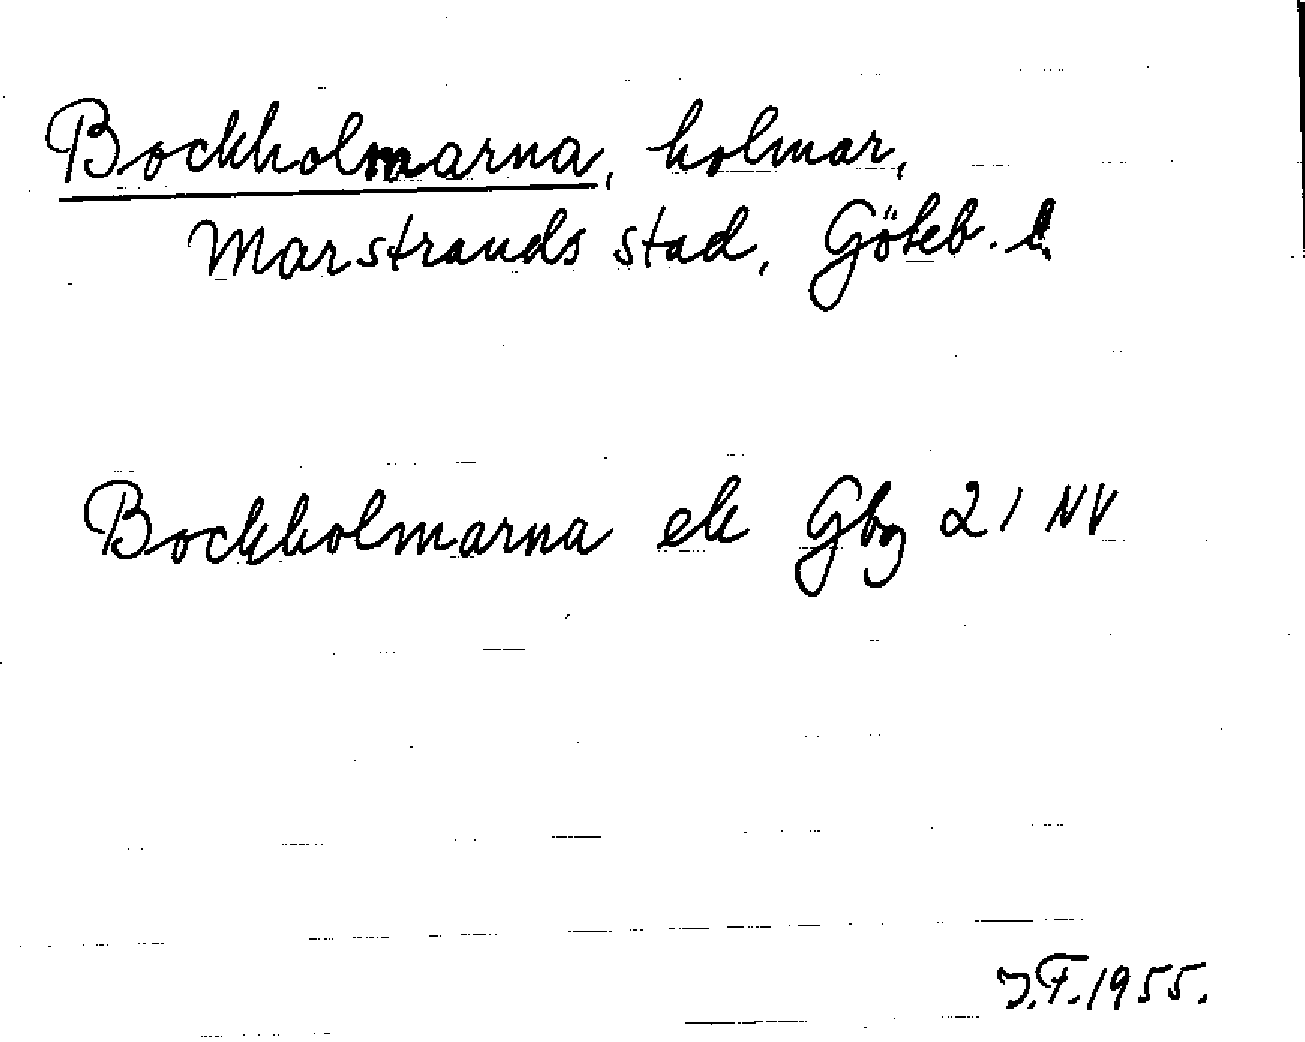 Bockholmarna, holmar,
Marstrands stad, Göteb. l.
Bockholmarna ek Gbg 21 NV
J.F. 1955.